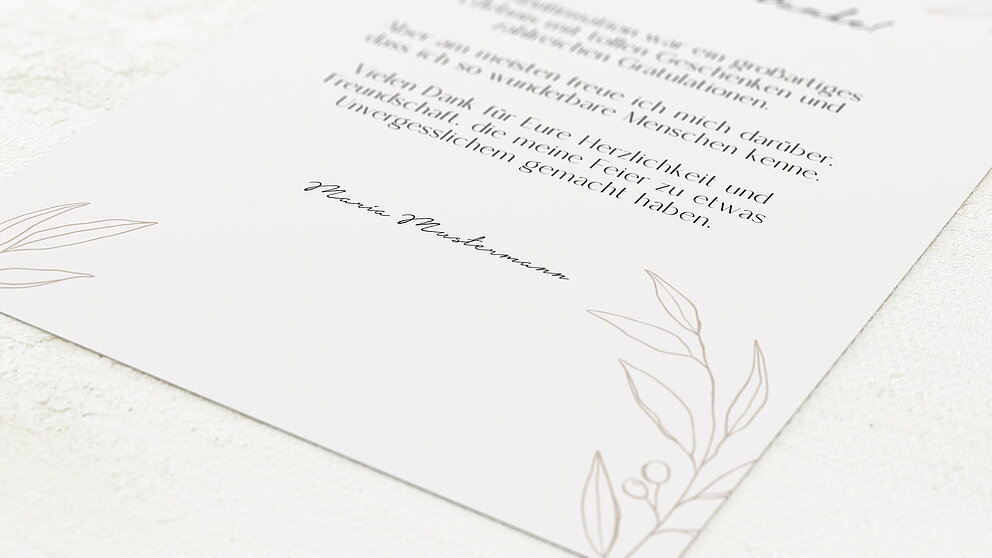 war ein großartiges
Erlebnis mit tollen Geschenken und
zahlreichen Gratulationen.
Aber am meisten freue ich mich darüber,
dass ich so wunderbare Menschen kenne.
Vielen Dank für Eure Herzlichkeit und
Freundschaft, die meine Feier zu etwas
Unvergesslichem gemacht haben.
Maria Mustermann